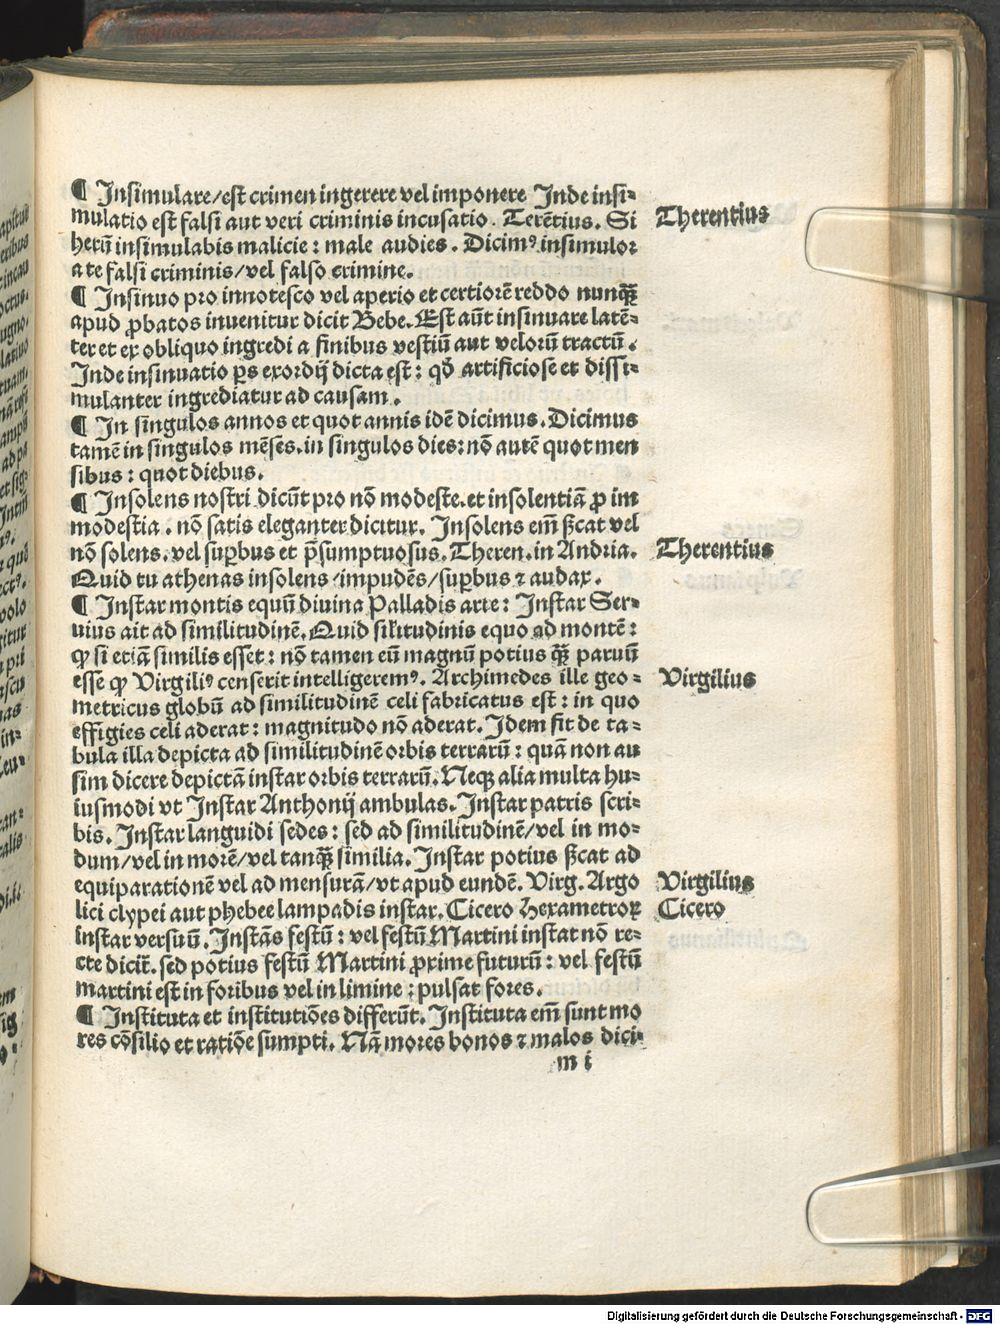 ¶ Insimulare/est crimen ingerere vel imponere Inde insi-
mulatio est falsi aut veri criminis incusatio. Terētius. Si
herū insimulabis malicie: male audies. Dicimꝰ insimulor
a te falsi criminis/vel falso crimine.
¶ Insinuo pro innotesco vel aperio et certiorē reddo nunq̄ꝫ
apud ꝓbatos inuenitur dicit Bebe. Est aūt insinuare latē-
ter et ex obliquo ingredi a finibus vestiū aut velorū tractū.
Inde insinuatio ꝑs exordij dicta est: qď artificiose et dissi-
mulanter ingrediatur ad causam.
¶ In singulos annos et quot annis idē dicimus. Dicimus
tamē in singulos mēses. in singulos dies: nō autē quot men
sibus: quot diebus.
¶ Insolens nostri dicūt pro nō modeste. et insolentiā ꝓ im
modestia. nō satis eleganter dicitur. Insolens em̄ sīcat vel
nō solens. vel suꝑbus et p̄sumptuosus. Theren. in Andria.
Quid tu athenas insolens/impudēs/suꝑbus ⁊ audax.
¶ Instar montis equū diuina Palladis arte: Instar Ser-
uius ait ad similitudinē. Quid silitudinis equo ad montē:
ꝙ si etiā similis esset: nō tamen eū magnū potius q̄ꝫ paruū
esse ꝙ Virgiliꝰ censerit intelligeremꝰ. Archimedes ille geo-
metricus globū ad similitudinē celi fabricatus est: in quo
effigies celi aderat: magnitudo nō aderat. Idem fit de ta-
bula illa depicta ad similitudinē orbis terrarū: quā non au
sim dicere depictā instar orbis terrarū. Neqꝫ alia multa hu-
iusmodi vt Instar Anthonij ambulas. Instar patris scri-
bis. Instar languidi sedes: sed ad similitudinē/vel in mo-
dum/vel in morē/vel tanq̄ꝫ similia. Instar potius sīcat ad
equiparationē vel ad mensurā/vt apud eundē. Virg. Argo
lici clypei aut phebee lampadis instar. Cicero Hexametroꝝ
instar versuū. Instās festū: vel festū Martini instat nō re-
cte dicit̄. sed potius festū Martini ꝓxime futurū: vel festū
martini est in foribus vel in limine: pulsat fores.
¶ Instituta et institutiōes differūt. Instituta em̄ sunt mo
res cōsilio et ratiōe sumpti. Nā mores bonos ⁊ malos dici-
m i
Therentius
Therentius
Virgilius
Virgilius
Cicero
Digitalisierung gefördert durch die Deutsche Forschungsgemeinschaft - DFG